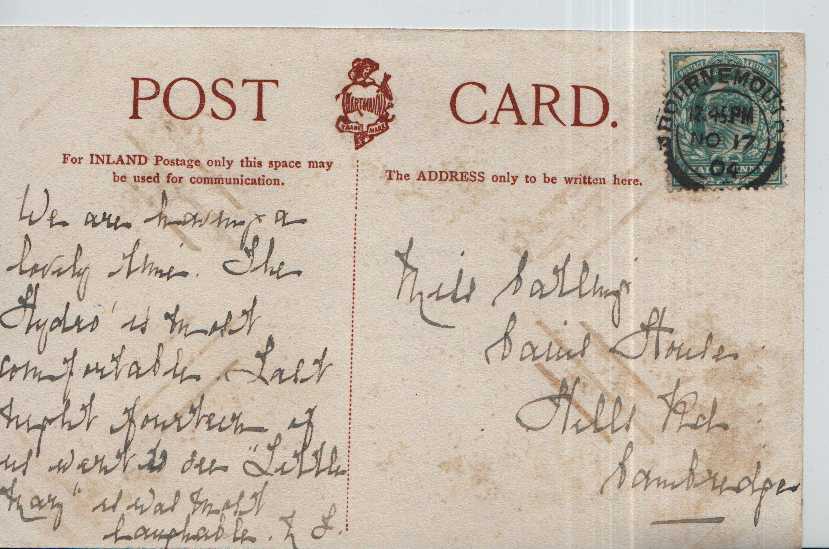 POST CARD.
HARTMANN
TRADE MARK
For INLAND Postage only this space may
be used for communication.
The ADDRESS only to be written here.
BOURNEMOUTH
12.45PM
NO 17
04
We are having a
lovely time. The
Hydro' is most
comfortable. Last
night fourteen of
us went to see "Little
Mary" it was most
laughable.
Miss
House
Hills Rd
Cambridge